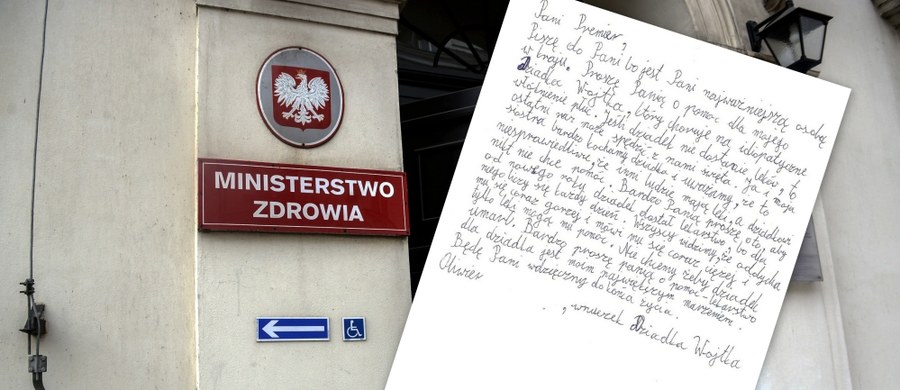 MINISTERSTWO
ZDROWIA
Pani Premier,
Piszę do Pani bo jest Pani najważniejszą osobą
w kraju. Proszę Panią o pomoc dla mojego
Dziadka Wojtka, który choruje na idiopatyczne
włóknienie płuc. Jeśli dziadek nie dostanie leków, to
ostatni raz może spędzić z nami święta. Ja i moja
siostra bardzo kochamy dziadka i uważamy, że to
niesprawiedliwe, że inni ludzie mają leki, a dziadkowi
nikt nie chce pomóc. Bardzo Panią proszę o to, aby
od nowego roku dziadek dostał lekarstwo, bo dla
niego liczy się każdy dzień. Wszyscy widzimy, że oddycha
mu się coraz gorzej i mówi mu się coraz i
tylko leki mogą mu pomóc. Nie chcemy żeby dziadek
umarł. Bardzo proszę panią o pomoc - lekarstwo
dla dziadka jest moim największym marzeniem.
Będę Pani wdzięczny do końca życia.
, wnuczek Dziadka Wojtka